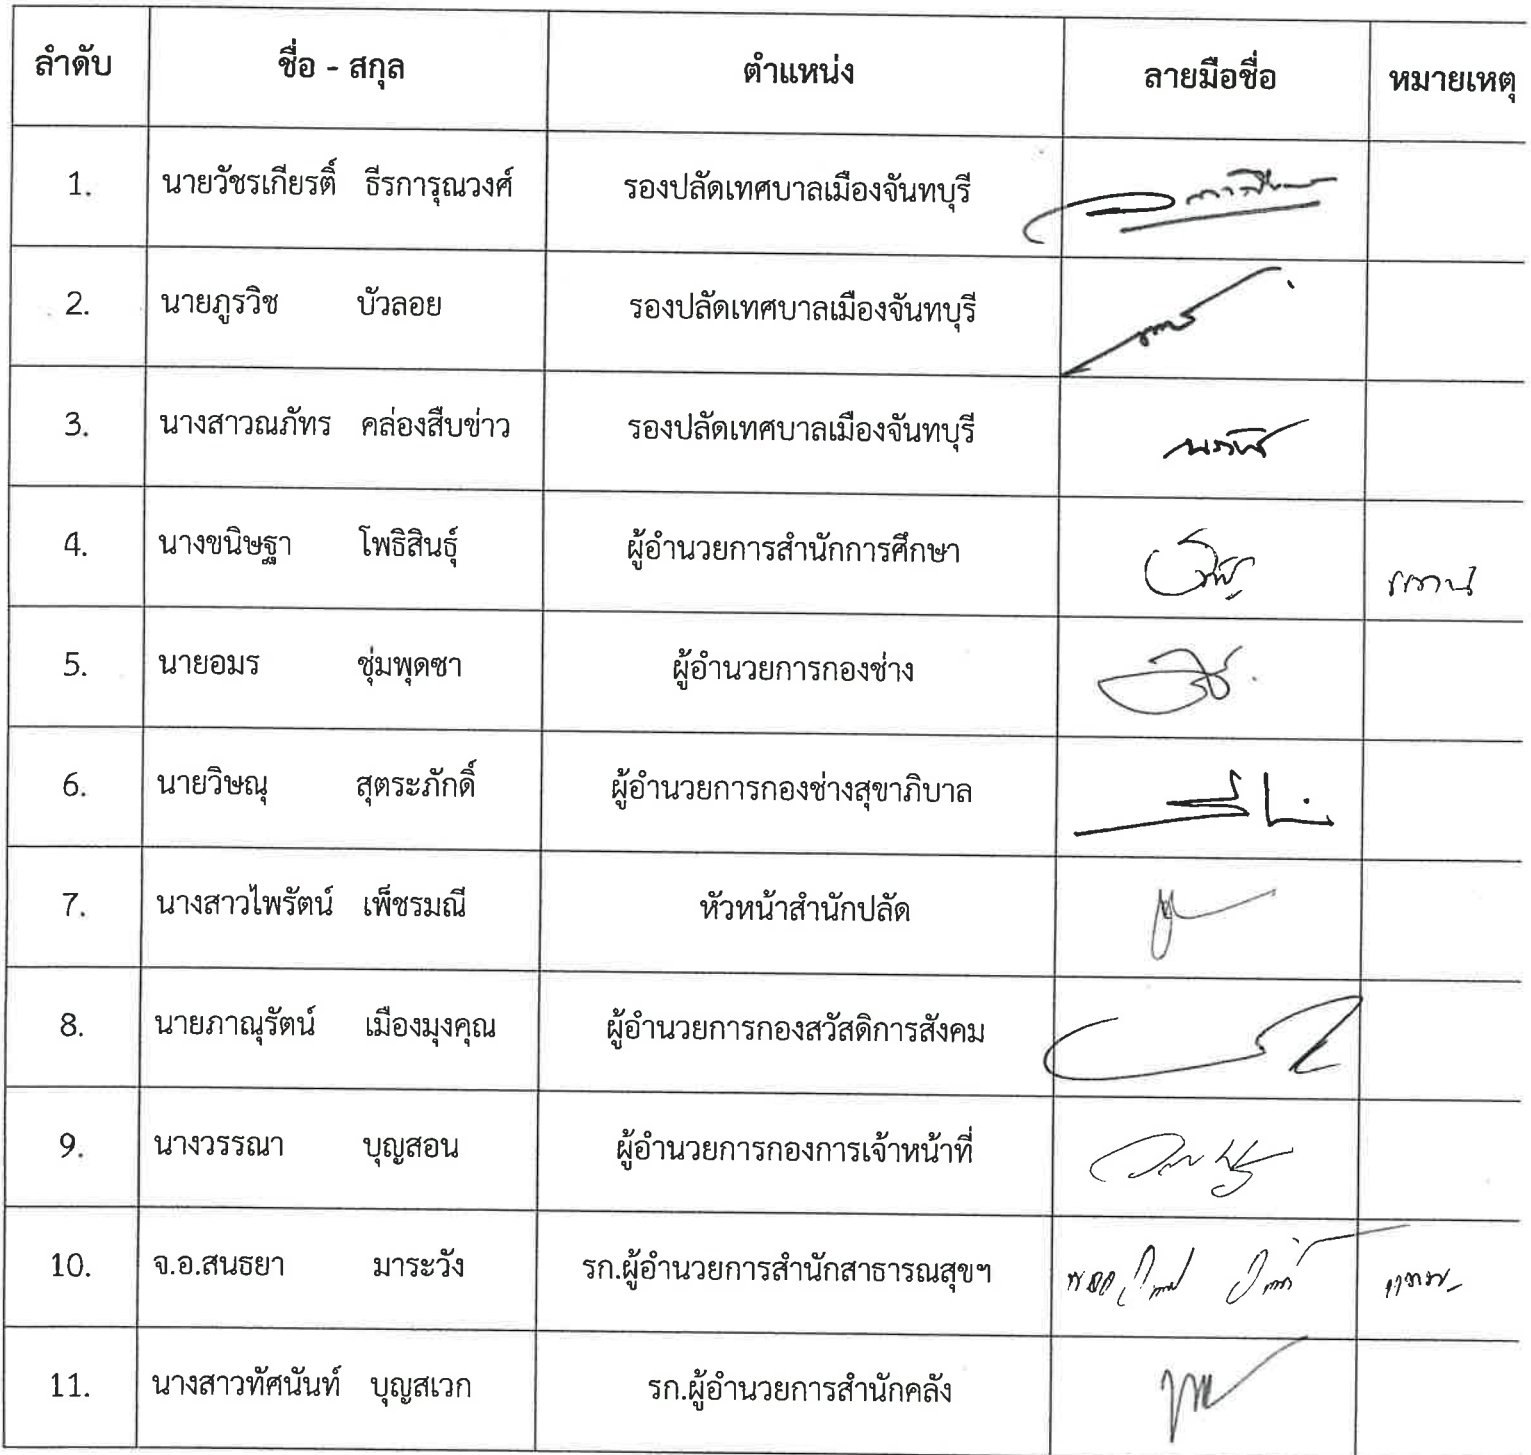 ลำดับ ชื่อ - สกุล ตำแหน่ง ลายมือชื่อ หมายเหตุ
1. นายวัชรเกียรติ์ ธีรการุณวงศ์ รองปลัดเทศบาลเมืองจันทบุรี
2. นายภูรวิช บัวลอย รองปลัดเทศบาลเมืองจันทบุรี
3. นางสาวณภัทร คล่องสืบข่าว รองปลัดเทศบาลเมืองจันทบุรี
4. นางขนิษฐา โพธิสินธุ์ ผู้อำนวยการสำนักการศึกษา
5. นายอมร ชุ่มพุดซา ผู้อำนวยการกองช่าง
6. นายวิษณุ สุตระภักดิ์ ผู้อำนวยการกองช่างสุขาภิบาล
7. นางสาวไพรัตน์ เพ็ชรมณี หัวหน้าสำนักปลัด
8. นายภาณุรัตน์ เมืองมุงคุณ ผู้อำนวยการกองสวัสดิการสังคม
9. นางวรรณา บุญสอน ผู้อำนวยการกองการเจ้าหน้าที่
10. จ.อ.สนธยา มาระวัง รก.ผู้อำนวยการสำนักสาธารณสุขฯ
11. นางสาวทัศนันท์ บุญสเวก รก.ผู้อำนวยการสำนักคลัง